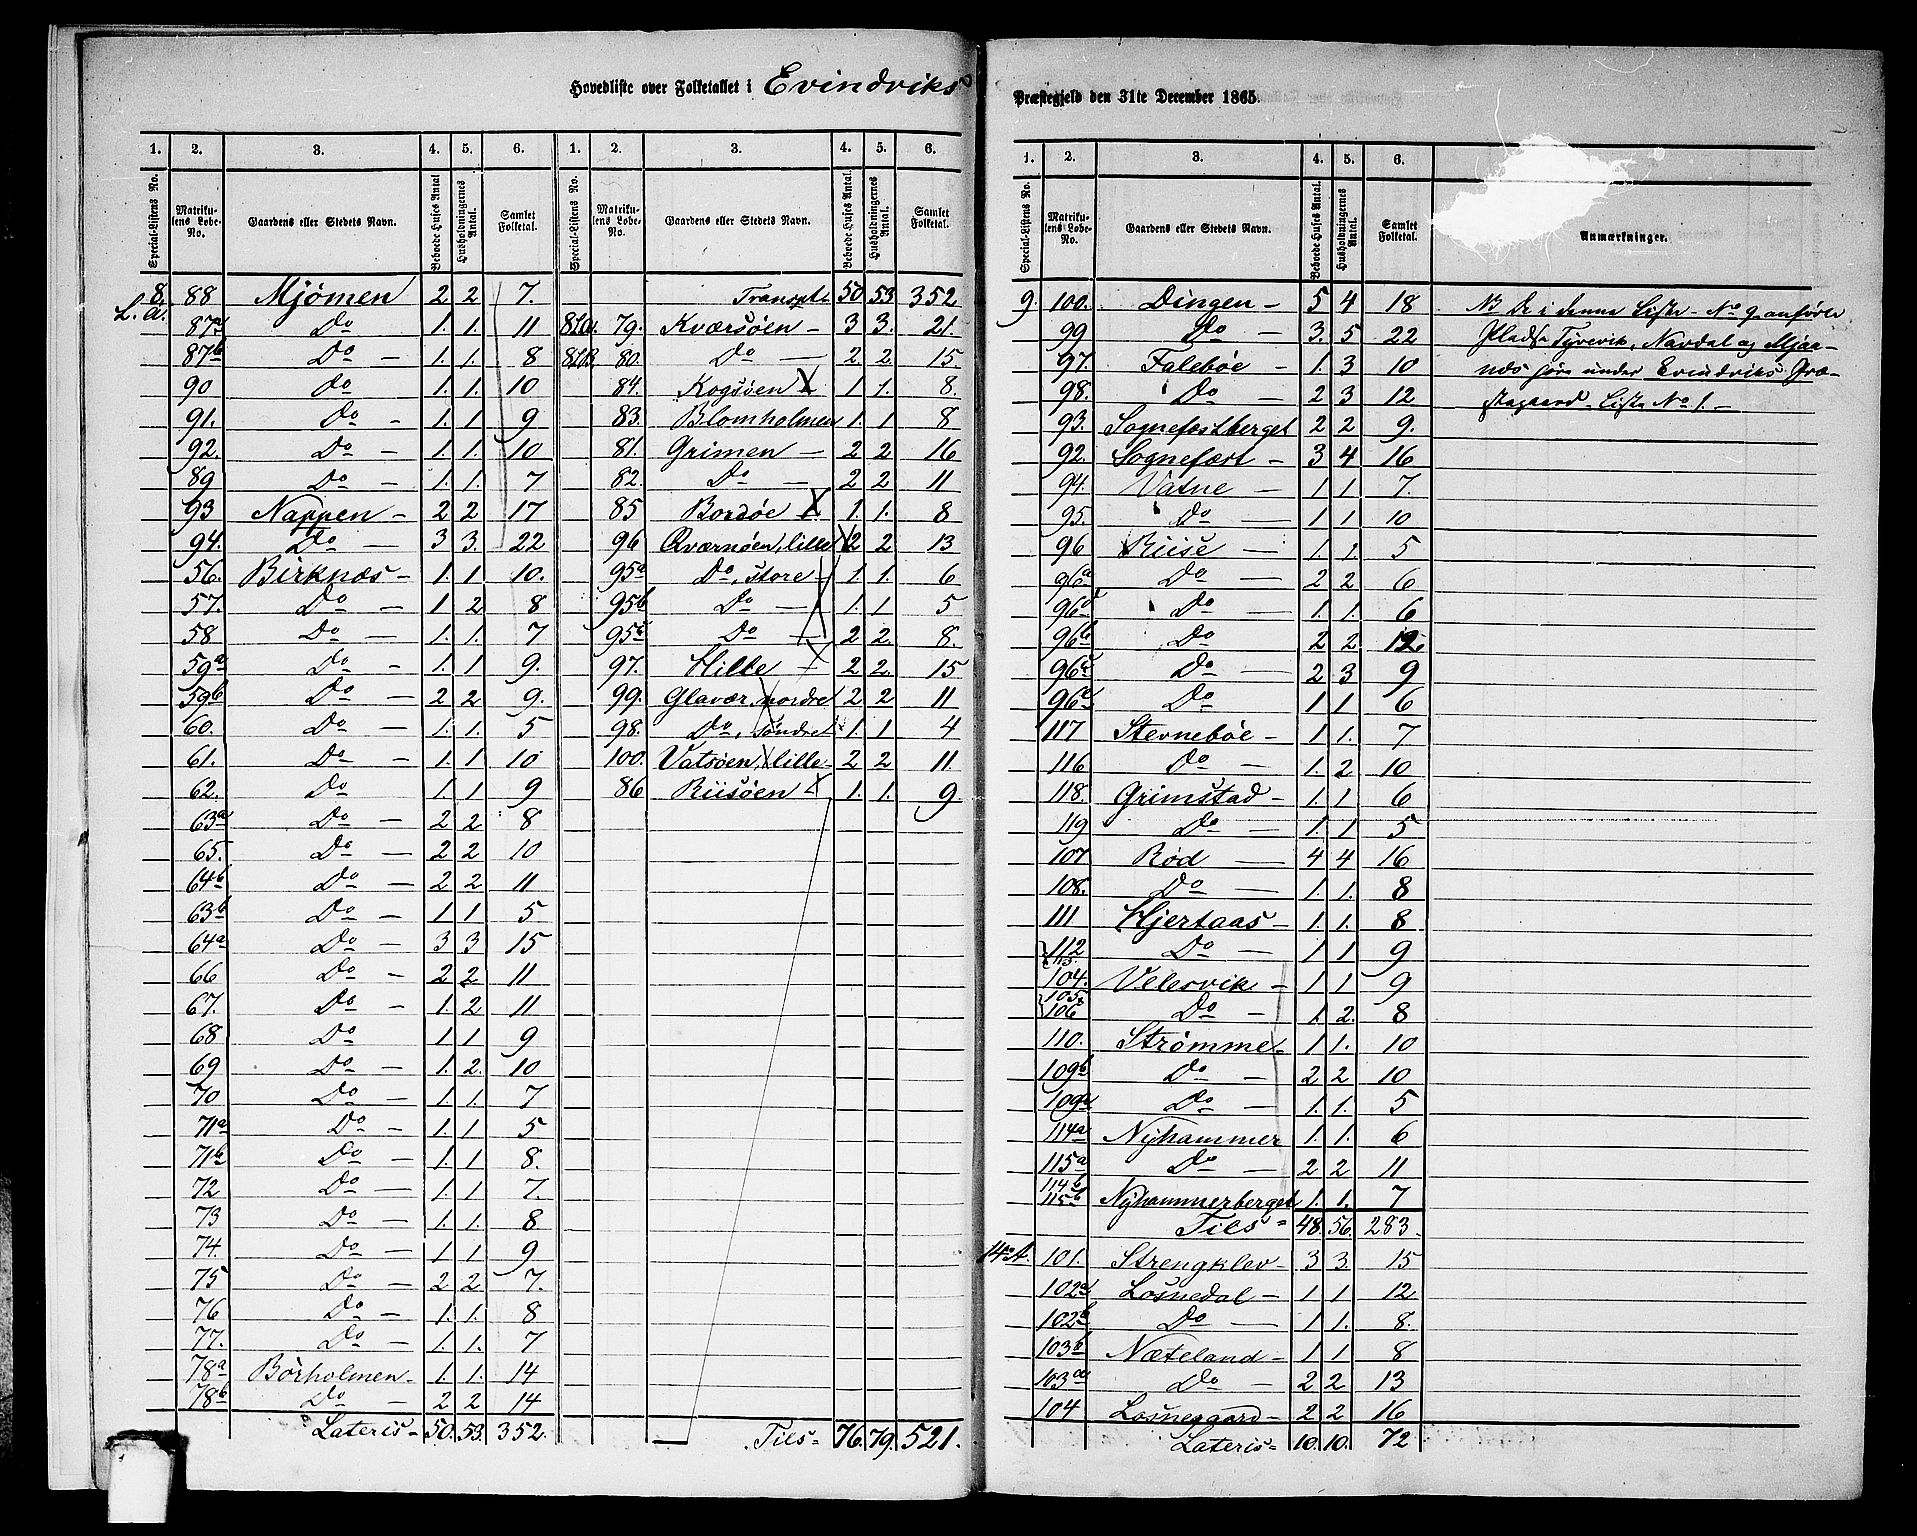 Hovedliste over Folketallet i Evindviks
1. 2. 3. 4. 5. 6. 1. 2. 3. 4. 5. 6.
Special-Listens No. Matrikulens Løbe-No. Gaardens eller Stedets Navn. Beboede Huses Antal Husholdningernes Antal. Samlet Folketal. Special-Listens No. Matrikulens Løbe-No. Gaardens eller Stedets Navn. Beboede Huses Antal. Husholdningernes Antal. Samlet Folketal.
8 L.a. 88 Mjømen 2 2 7. Transpt. 50 53 352
87a Do 1. 1. 11 8La. 79. Kværsøen - 3 3. 21.
87b Do - 1. 1. 8 8LB. 80. Do - 2 2 15.
90 Do 1. 1. 10 84. Kogsøen X 1 1. 8.
91. Do - 1. 1 9 83. Blomholmen 1. 1 8
92. Do - 1. 1. 10 81. Grimen - 2 2 16
89 Do - 1. 1. 7 82. Do - 2 2 11
93 Nappen - 2 2 17 85 Bordøe X 1. 1. 8
94. Do - 3 3. 22 96 Qværnøen, lille 2 2 13
56. Birknæs - 1. 1 10. 95a Do, store - 1. 1. 6
57. Do - 1 2 8 95b Do - 1. 1 5
58 Do - 1. 1. 7 95c Do - 2 2. 8.
59a Do - 1. 1 9. 97. Hille - 2 2 15
59b Do - 2 2 9. 99. Glavær nordre 2 2 11
60. Do - 1. 1. 5 98. Do, Søndre 1. 1 4
61. Do - 1. 1 10 100. Vatsøen, lille - 2 2 11.
62. Do 1 1 9 86 Riisøen X 1. 1. 9.
63a Do - 2 2 8
65. Do - 2 2 10
64b Do - 2 2 11
63b Do - 1 1 5
64a Do - 3 3 15
66 Do - 2 2 11
67. Do - 1. 2 11
68 Do 1 1 9
69 Do - 1. 2. 10
70 Do - 1. 1 7
71a Do - 1. 1 5
71b Do - 1. 1 8.
72 Do - 1. 1 7.
73 Do - 1. 1. 8
74. Do - 1 1 9
75 Do - 2 2 7.
76 Do - 1. 1. 8
77. Do - 1. 1. 7
78a Børholmen - 1. 1. 14
78b Do - 2 2 14
Lateris - 50. 53. 352. - Tils - 76. 79. 521.
Præstegjeld den 31te December 1865.
1. 2. 3. 4. 5. 6.
Special-Listens No. Matrikulens Løbe-No. Gaardens eller Stedets Navn. Beboede Huses Antal. Husholdningernes Antal. Samlet Folketal. Anmærkninger.
9. 100. Dingen - 5 4 18 NB De i denne Liste No 9 anførte
99 Do - 3. 5 22 Pladse Tyvevik, Navdal og Mjaa-
97. Falebøe - 1. 3 10 nds høre under Evindviks Præ-
98. Do - 2 3 12 stegaard Liste No 1. -
93. Sognefæstberget 2 2 9.
92. Sognefært - 3 4 16
94. Vatne - 1 1 7.
95. Do - 1 1 10
96 Riise - 1. 1. 5
96a Do - 2 2 6
96d Do - 1. 1. 6
96b Do 2 2. 12.
96c Do - 2 3 9
96e Do - 1 1 6
117 Stevnebøe - 1 1. 7
116 Do - 1. 2 10
118. Grimstad - 1. 1 6
119 Do - 1 1 5
107 Rød - 4 4 16
108. Do - 1. 1. 8
111 Hjertaas - 1. 1. 8
112 113. Do - 1 1 9
104. Velesvik - 1 1 9
105 & 106 Do - 1. 2. 8
110. Strømme - 1 1. 10
109b Do - 2 2 10
109a Do - 1. 1. 5
114a Nyhammer 1. 1. 6
115a Do - 2 2 11
114b 115b Nyhammerberget 1. 1. 7
Tils - 48. 56. 283.
14. A. 101. Strengklev - 3 3. 15
102a Losnedal - 1 1 12
102b Do - 1 1. 8.
103b Næteland - 1 1 8
103a Do - 2 2 13
104 Losnegaard - 2 2 16
Lateris - 10. 10. 72